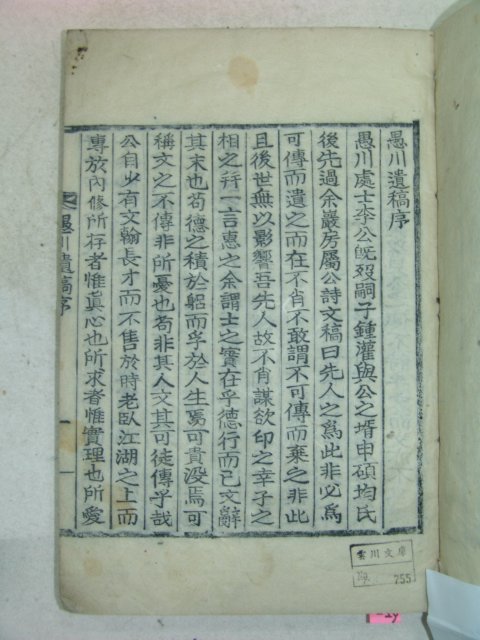 愚川遺稿序
愚川處士李公旣歿嗣子鍾灌與公之壻申碩均氏
後先過余巖房屬公詩文稿曰先人之爲此非必爲
可傳而遺之而在不肖不敢謂不可傳而棄之非此
且後世無以影響吾先人故不肖謀欲印之幸子之
相之玆一言惠之余謂士之實在乎德行而已文辭
其末也苟德之積於躬而孚於人生焉可貴沒焉可
稱文之不傳非所憂也苟非其人文其可徒傳乎哉
公自少有文翰長才而不售於時老臥江湖之上而
專放內修所存者惟眞心也所求者惟實理也所愛
愚川遺稿序
一
雲川文庫
No. 755